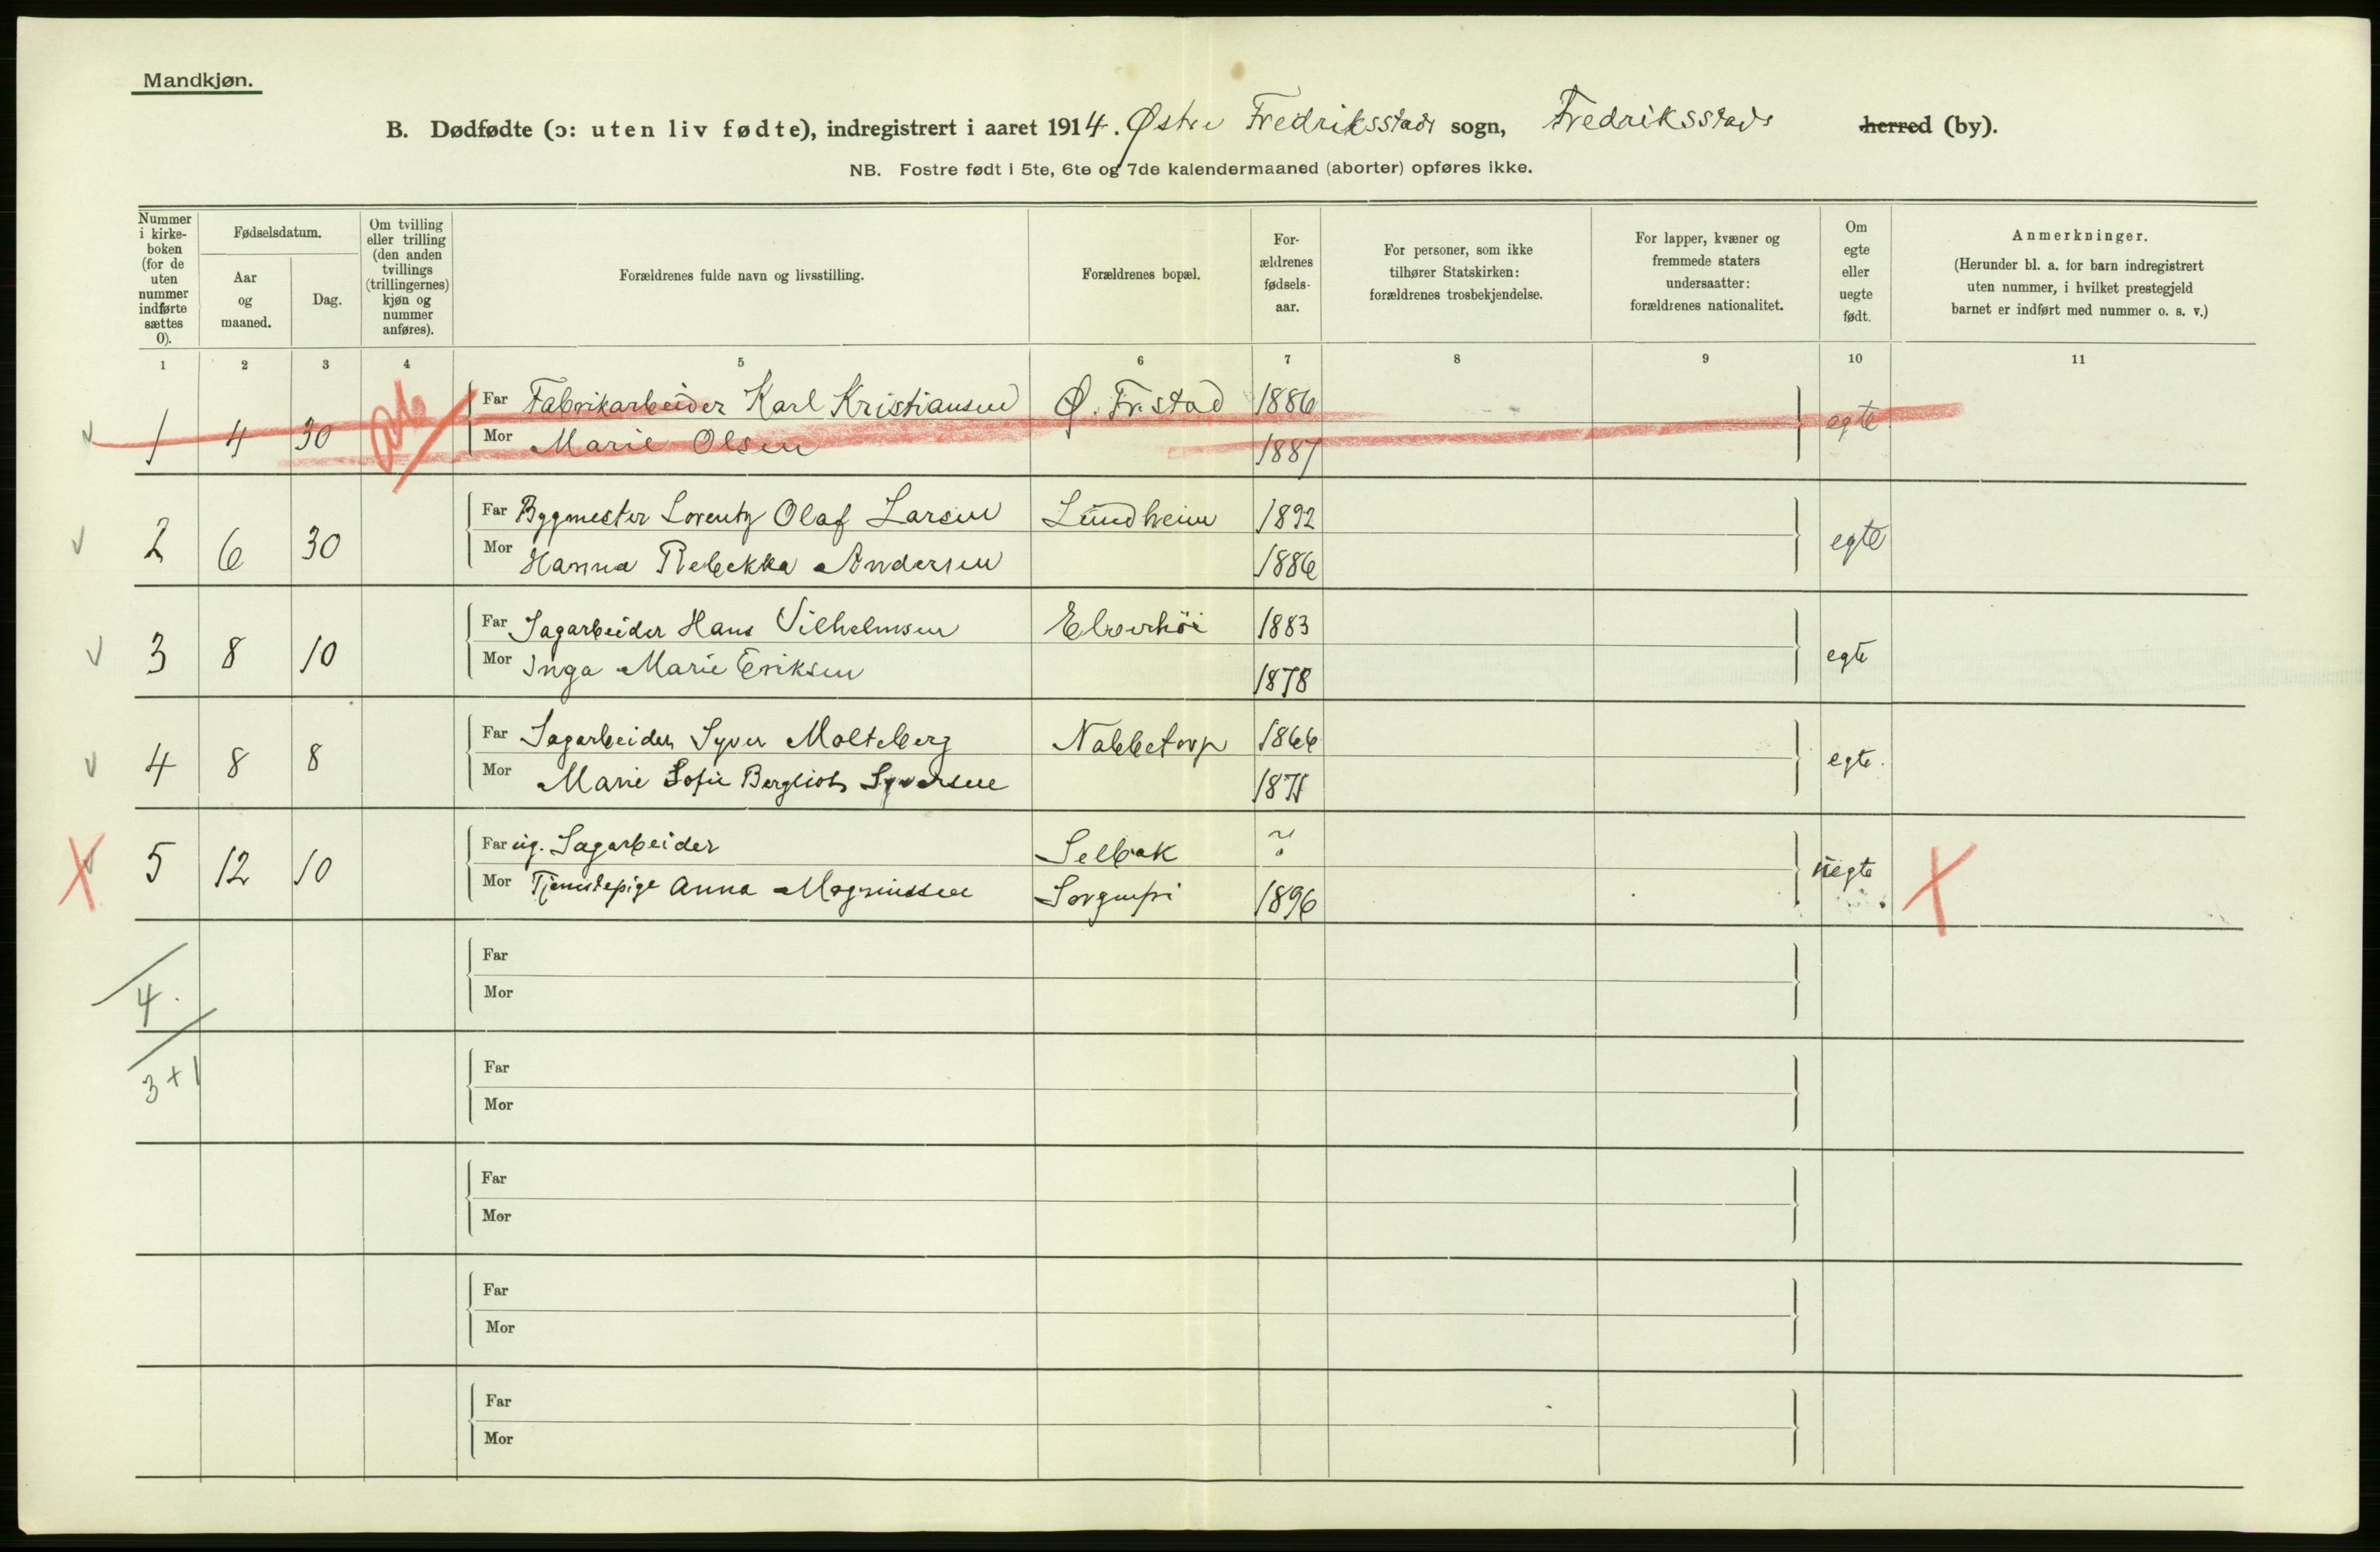 Mandkjøn.
B. Dødfødte (ɔ: uten liv fødte), indregistrert i aaret 1914. Østre Fredriksstads sogn, Fredriksstads herred (by).
NB. Fostre født i 5te, 6te og 7de kalendermaaned (aborter) opføres ikke.
Nummer i kirke-boken (for de uten nummer indførte sættes 0).
Fødselsdatum.
Aar og maaned.
Dag.
Om tvilling eller trilling (den anden tvillings (trillingernes) kjøn og nummer anføres).
Forældrenes fulde navn og livsstilling.
Forældrenes bopæl.
For-ældrenes fødsels-aar.
For personer, som ikke tilhører Statskirken: forældrenes trosbekjendelse.
For lapper, kvæner og fremmede staters undersaatter: forældrenes nationalitet.
Om egte eller uegte født.
Anmerkninger.
(Herunder bl. a. for barn indregistrert uten nummer, i hvilket prestegjeld barnet er indført med nummer o. s. v.)
1 2 3 4 5 6 7 8 9 10 11
Far Fabrikarbeider Karl Kristiansen Ø. Fr.stad 1886
1 4 30 Mor Marie Olsen 1887 egte
Far Bygmester Lorentz Olaf Larsen Lundheim 1892
2 6 30 Mor Hanna Rebekka Andersen 1886 egte
Far Sagarbeider Hans Vilhelmsen Elverhöi 1883
3 8 10 Mor Inga Marie Eriksen 1878 egte
Far Sagarbeider Syver Molteberg Nabbetorp 1866
4 8 8 Mor Marie Sofie Bergliot Syversen egte.
Far ug. Sagarbeider Selbak ?
5 12 10 Mor Tjenstepige Anna Magnussen 1896 uegte
Far
4. Mor
Far
3 + 1 Mor
Far
Mor
Far
Mor
Far
Mor